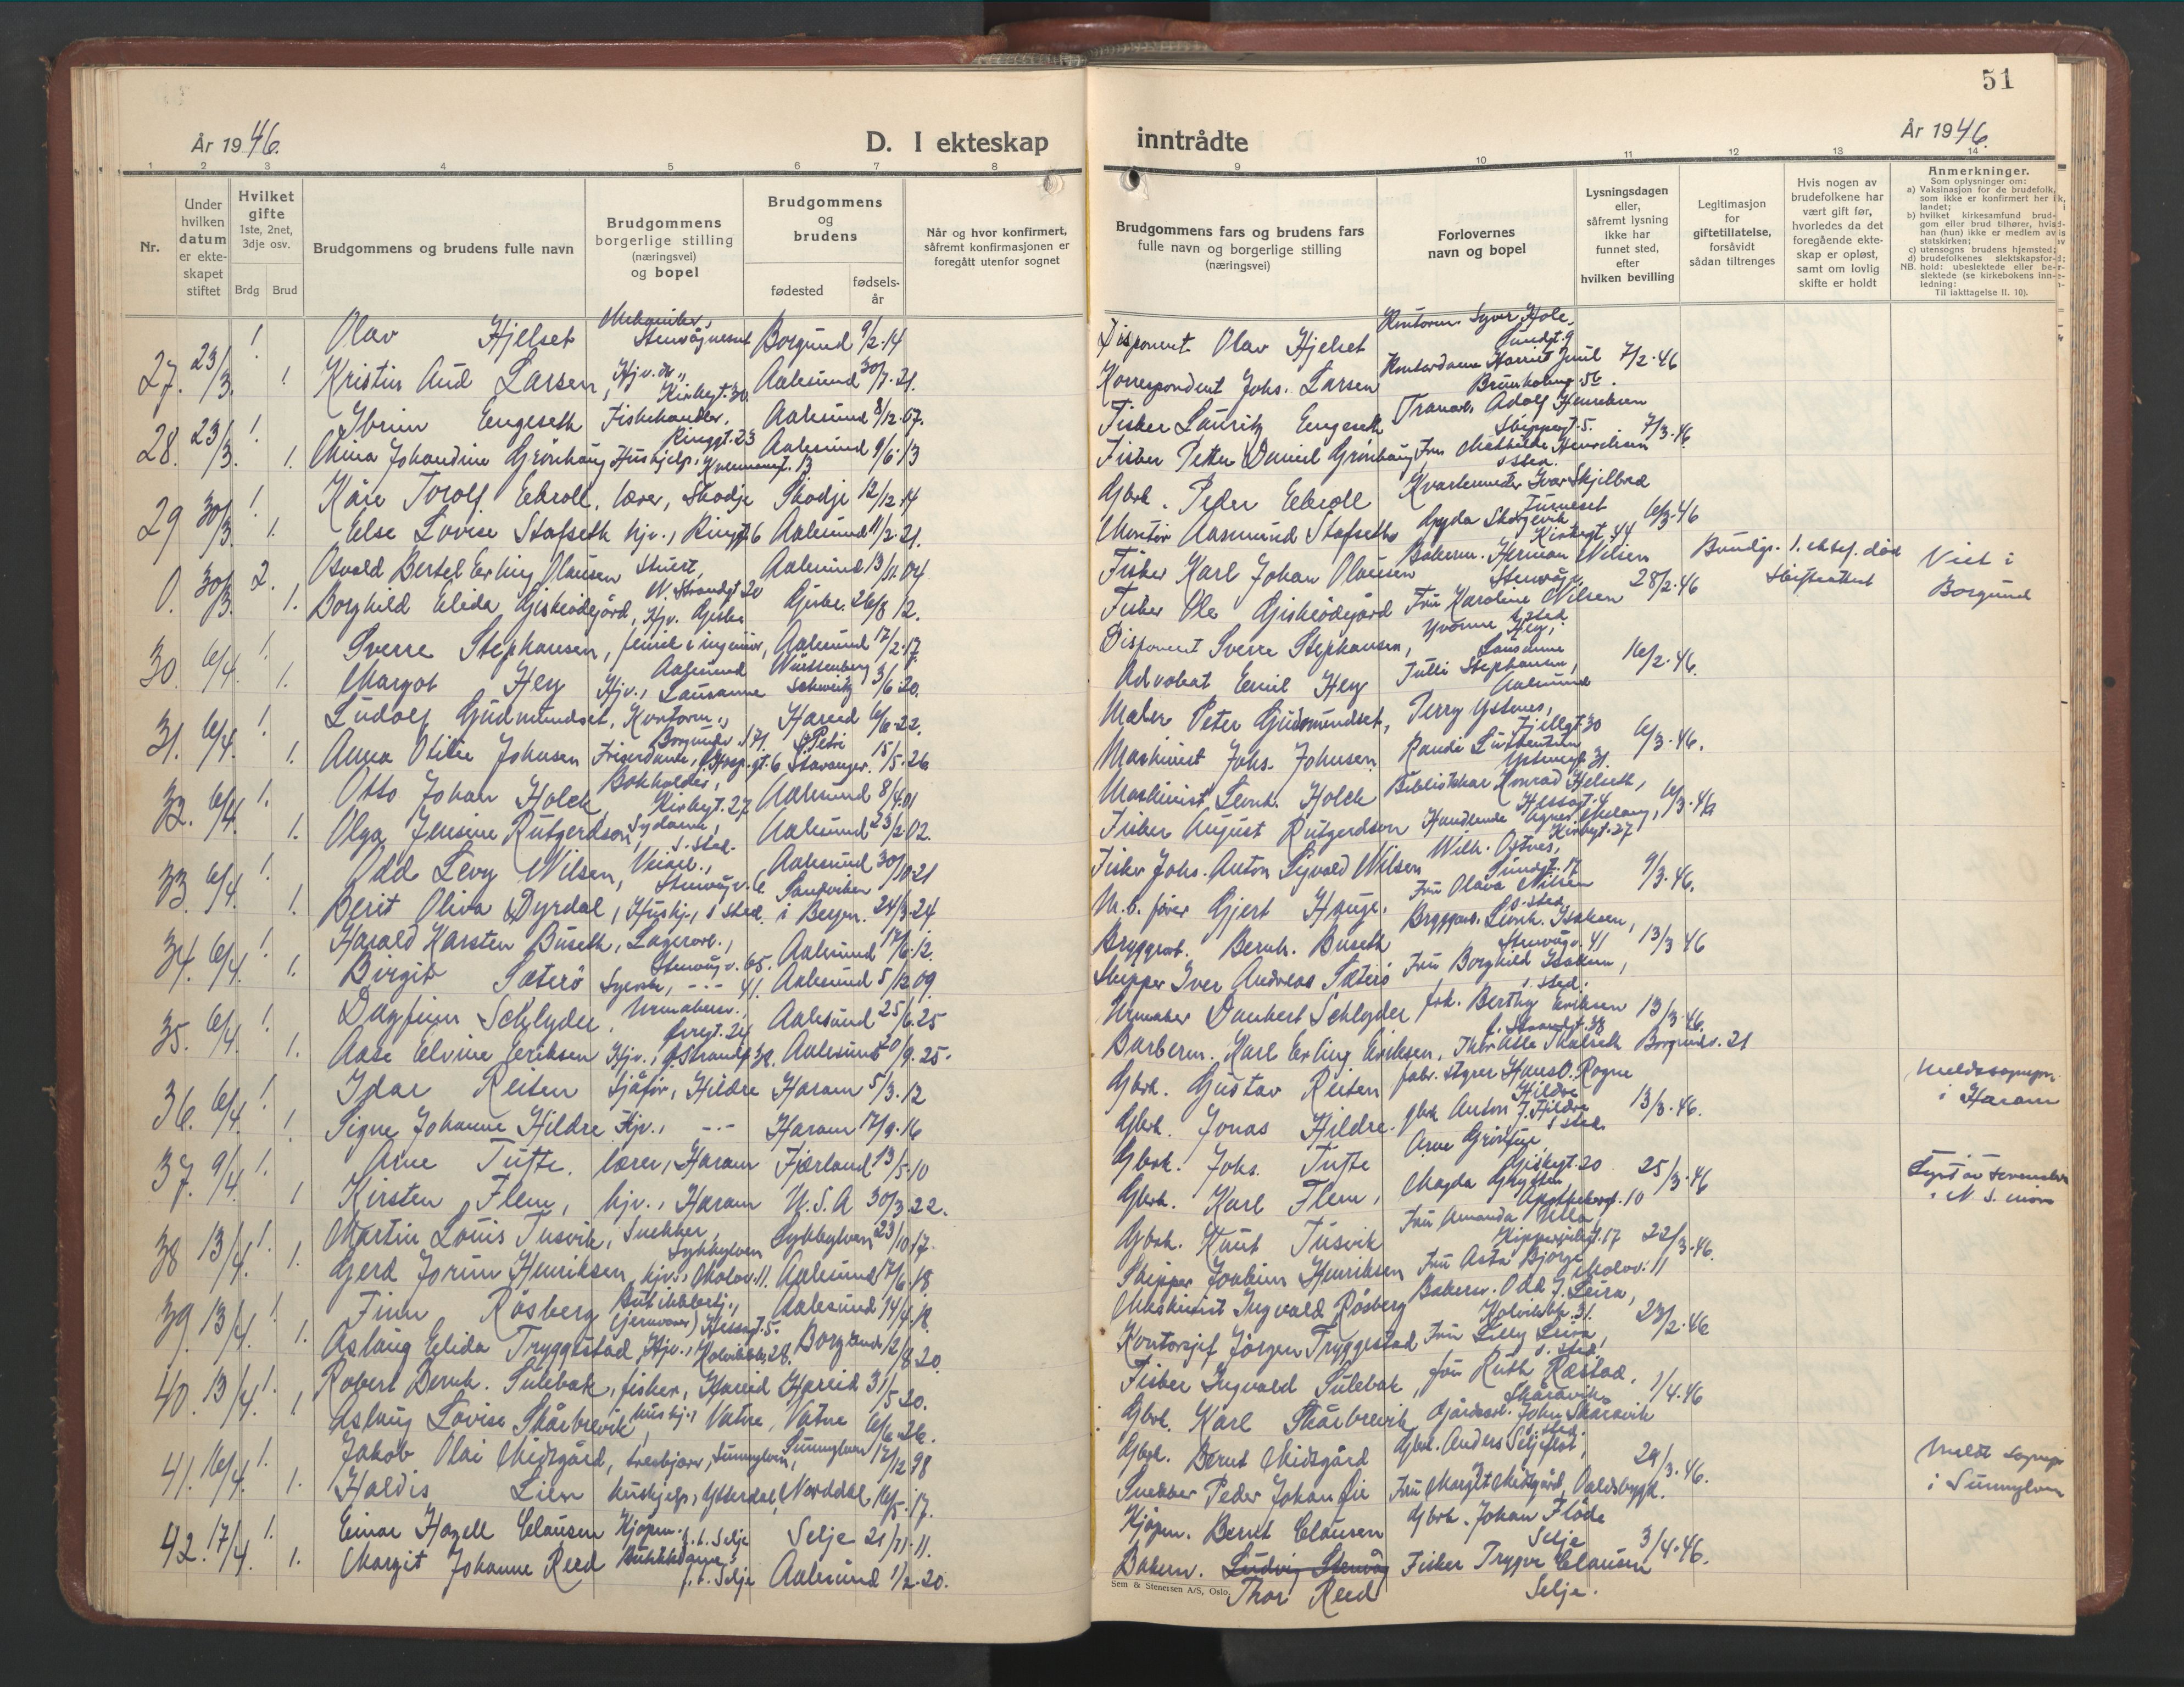 51
År 1946.
D. I ekteskap inntrådte
År 1946.
1 2 3 4 5 6 7 8 9 10 11 12 13 14
Nr.
Under hvilken datum er ekteskapet stiftet
Hvilket gifte 1ste, 2net, 3dje osv.
Brdg Brud
Brudgommens og brudens fulle navn
Brudgommens borgerlige stilling (næringsvei) og bopel
Brudgommens og brudens
fødested
fødselsår
Når og hvor konfirmert, såfremt konfirmasjonen er foregått utenfor sognet
Brudgommens fars og brudens fars fulle navn og borgerlige stilling (næringsvei)
Forlovernes navn og bopel
Lysningsdagen eller, såfremt lysning ikke har funnet sted, efter hvilken bevilling
Legitimasjon for giftetillatelse, forsåvidt sådan tiltrenges
Hvis nogen av brudefolkene har vært gift før, hvorledes da det foregående ekteskap er opløst, samt om lovlig skifte er holdt
Anmerkninger.
Som oplysninger om:
a) Vaksinasjon for de brudefolk, som ikke er konfirmert her i landet;
b) hvilket kirkesamfund brudgom eller brud tilhører, hvis han (hun) ikke er medlem av statskirken;
c) utensogns brudens hjemsted;
d) brudefolkenes slektskapsforhold: ubeslektede eller beslektede (se kirkebokens innledning:
NB.
Til iakttagelse II. 10).
27. 23/3. 1. Olav Hjelset Stenvågneset Borgund 9/2.14 Disponent Olav Hjelset Kontorm. Syver Hole,
1. Kristin Aud Larsen, Hjv. dr., Kirkegt. 30. Aalesund 30/7.21. Korrespondent Johs. Larsen Kontordame Harriet Juul 7/2.46
28. 23/3. 1. Engeseth Fiskehandler, Ringgt. 23 Aalesund 8/12.07. Fisker Lauritz Engeseth Adolf Henriksen Skippergt. 5. 7/3.46
1. Mina Johandine Grønhaug Hushjelp, 13 Aalesund 9/6.13 Fisker Petter Daniel Grønhaug Fru Mathilde Henriksen s. sted.
29 30/3. 1. Kåre Torolf Ekroll, lærer, Skodje Skodje 12/12.14 Gbrk. Peder Ekroll Kvartermester Ivar Skjilbred
1. Else Lovise Stafseth hjv., Ringgt. 6 Aalesund 11/2.21. Montør Aasmund Stafseth Gyda Kirkegt. 44 6/3.46
0. 30/3. 2. Osvald Bertel Erling Olausen Stuert, N. Strandgt 20 Aalesund 13/11.04 Fisker Karl Johan Olausen Bakerm. Herman Nilsen Stenvåg. 28/2.46 Brudgs. 1. ektef. død Skifteattest Viet i Borgund
1. Borghild Elida Giskeødegård, Hjv. Giske Giske. 26/8 12. Fisker Ole Giskeødegård Fru Karoline Nilsen s. sted
30. 6/4. 1. Sverre Stephansen, kemik. ingeniør, Aalesund Aalesund 17/2.17. Disponent Sverre Stephansen, Yvonne Hey, Lausanne 16/2.46.
1. Margot Hey Hjv., Lausanne Württemberg Schweitz 3/6.20. Advokat Emil Hey Tulli Stephansen, Aalesund
31. 6/4. 1. Ludolf Gudmundset, Kontorm., Hareid 6/6.22. Maler Peter Gudmundset, Perry Ystenes, Fjellgt. 30 6/3.46.
1. Anna Otilie Johnsen Friserdame, St. Petri Stavanger. 15/5.26 Maskinist Johs. Johnsen Randi
32. 6/4. 1. Otto Johan Holck Bokholder, Kirkegt. 27 Aalesund 8/4.01 Maskinist Leonh. Holck Bibliotekar Konrad Helseth, Hessagt. 4 6/3.46
1. Olga Jensine Rutgerdson, Sydame, s. sted. Aalesund 23/2.02. Fisker August Rutgerdson Agnes Kirkegt. 27
33. 6/4. 1. Odd Levy Nilsen, Veiarb., Stenvågv. 6. Aalesund 30/10.21 Fisker Johs. Anton Sigvald Nilsen Wilh. Ostnes, Sundgt. 17 9/3.46.
1. Berit Oliva Dyrdal, Hushj., s sted. Sandviken i Bergen. 24/3.24 M.b. fører Gjert Hauge. Fru Olava Nilsen s. sted
34. 6/4. 1. Harald Karsten Buseth, Lagerarb., Stenvågv. 65. Aalesund 17/6.12. Bryggearb. Bernh. Buseth Bryggearb. Leonh. Isaksen, Stenvågv. 41 13/3.46
1. Birgit Sæterø Syerske, -"- 41. Aalesund 5/12 09. Skipper Iver Andreas Sæterø Fru Borghild Isaksen, s. sted.
35. 6/4. 1. Dagfinn Schlyder, Urmaker., Aalesund 25/6.25 Urmaker Daubert Schlyder frk. Berthy Eriksen 13/3.46.
1. Aase Elvine Eriksen Hjv., Ø. Strandgt. 38. Aalesund 20/9.25. Barberm. Karl Erling Eriksen, Borgundv. 21
36. 6/4. 1. Idar Reiten Sjåfør, Hildre Haram 5/3.12 Gbrk. Gustav Reiten fabr. styrer Hans O. Rogne Hildre 13/3.46. Meldt sognepr. i Haram
1. Signe Johanne Hildre Hjv., -"- Haram 17/9.16 Gbrk. Jonas Hildre. gbrk Anton J. Hildre s sted.
37. 9/4. 1. Arne Tufte, lærer, Haram Fjærland 13/5.10 Gbrk. Johs. Tufte Arne Giskegt. 20 25/3.46
1 Kirsten Flem, hjv., Haram U.S.A 30/3.22. Gbrk. Karl Flem, Magda Apothekergt. 10
38 13/4. 1. Martin Louis Tusvik, Snekker, Sykkylven Sykkylven 23/10.17. Gbrk. Knut Tusvik Fru Amanda Ulla, 17 22/3.46.
1. Gerd Jorunn Henriksen, hjv., Molov. 11. Aalesund 17/6.18. Skipper Joakim Henriksen Fru Asta Bjørge Molov. 11
39. 13/4. 1. Finn Røsberg (jernvarer) Hessagt. 5. Aalesund 14/4.18. Maskinist Ingvald Røsberg Bakerm. Odd J. Leira, 31. 23/2.46
1. Aslaug Elida Tryggestad, Hjv., 28. Borgund 12/8.20 Kontorsjef Jørgen Tryggestad Fru Lilly Leira, s. sted.
40. 13/4. 1. Robert Bernh. Sulebak, fisker, Hareid Hareid 31/5.20. Fisker Ingvald Sulebak, fru Ruth Røstad, 1/4.46
1 Aslaug Lovise Skårbrevik, hushj., Vatne, Vatne 6/6.26. Gbrk. Karl Skårbrevik Gårdsarb. John Skåravik s. sted.
41. 16/4. 1. Jakob Olai Midtgård, Sunnylven, Sunnylven 17/12 98 Gbrk. Bernt Midtgård Gbrk. Anders Seljeflot, 29/3.46. Meldt sognepr. i Sunnylven
1. Haldis Lien hushjelp, Ytterdal, Norddal, 16/5.17. Snekker Peder Johan Lie Fru Margit Midtgård,
42. 17/4. 1. Einar Hagell Clausen Kjøpm. f. t. Selje Selje 21/11.11. Kjøpm. Bernt Clausen Gbrk. Johan Flöde Selje 3/4.46.
1. Margit Johanne Reed f. t. Selje Aalesund 1/2.20. Bakerm. Ludvig Stenvåg Fisker Trygve Clausen
Thor Reed Selje.
Sem & Stenersen A/S, Oslo.